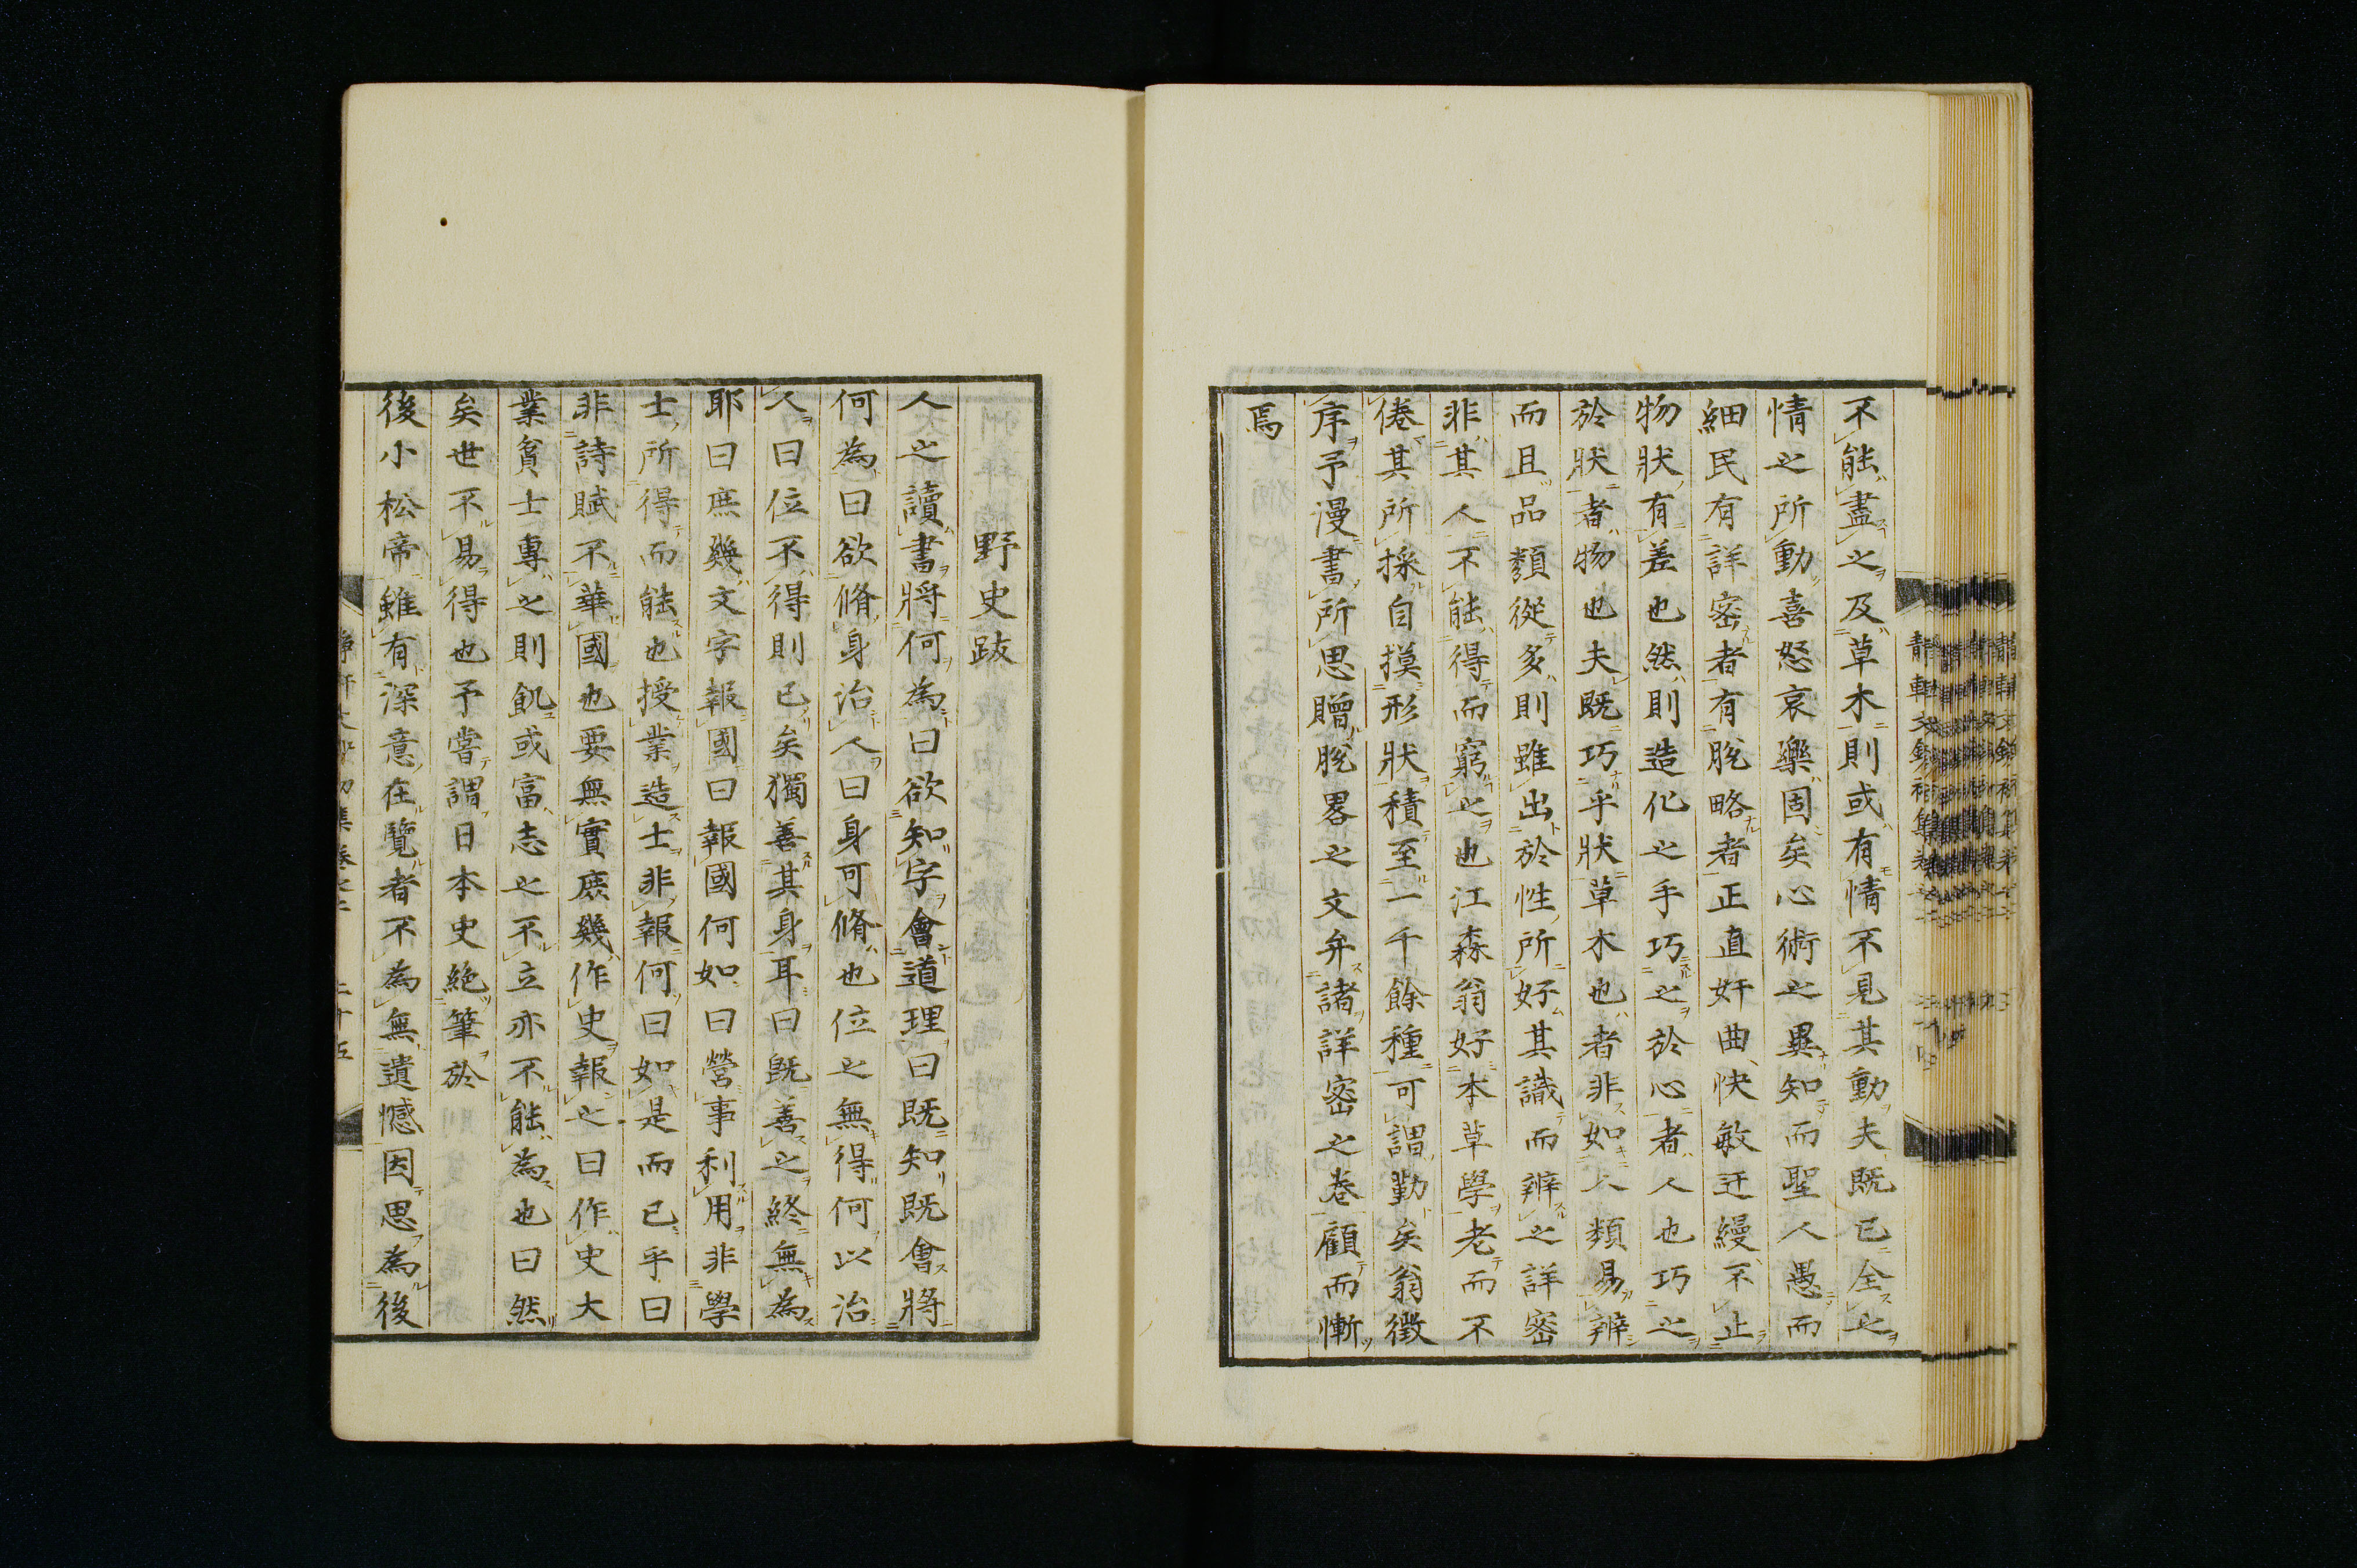 不能盡之及草木則或有情不見其動夫既已全之
情之所動喜怒哀樂固矣心術之異知而聖人愚而
細民有詳密者有脫略者正直奸曲快敏迂縵不止
物狀有差也然則造化之手巧之於心者人也巧之
於狀者物也夫既巧乎狀草木也者非如人類易辨
而且品類從多則雖出於性所好好其識而辨之詳密
非其人不能得而窮之也江森翁好本草學老而不
倦其所採自摸形狀積至一千餘種可謂勤矣翁徵
序予漫書所思贈脫畧之文弁諸詳密之卷顧而慚
焉
野史跋
人之讀書將何為曰欲知字會道理曰既知既會將
何為曰欲脩身治人曰身可脩也位之無得何以治
人曰位不得則已矣獨善其身耳曰既善之終無為
耶曰庶幾文字報國曰報國何如曰營事利用非學
士所得而能也授業造士非報何曰如是而已乎曰
非詩賦不華國也要無實庶幾作史報之曰作史大
業貧士專之則飢或富志之不立亦不能為也曰然
矣世不易得也予嘗謂日本史絶筆於
後小松帝雖有深意在覽者不為無遺憾因思為後